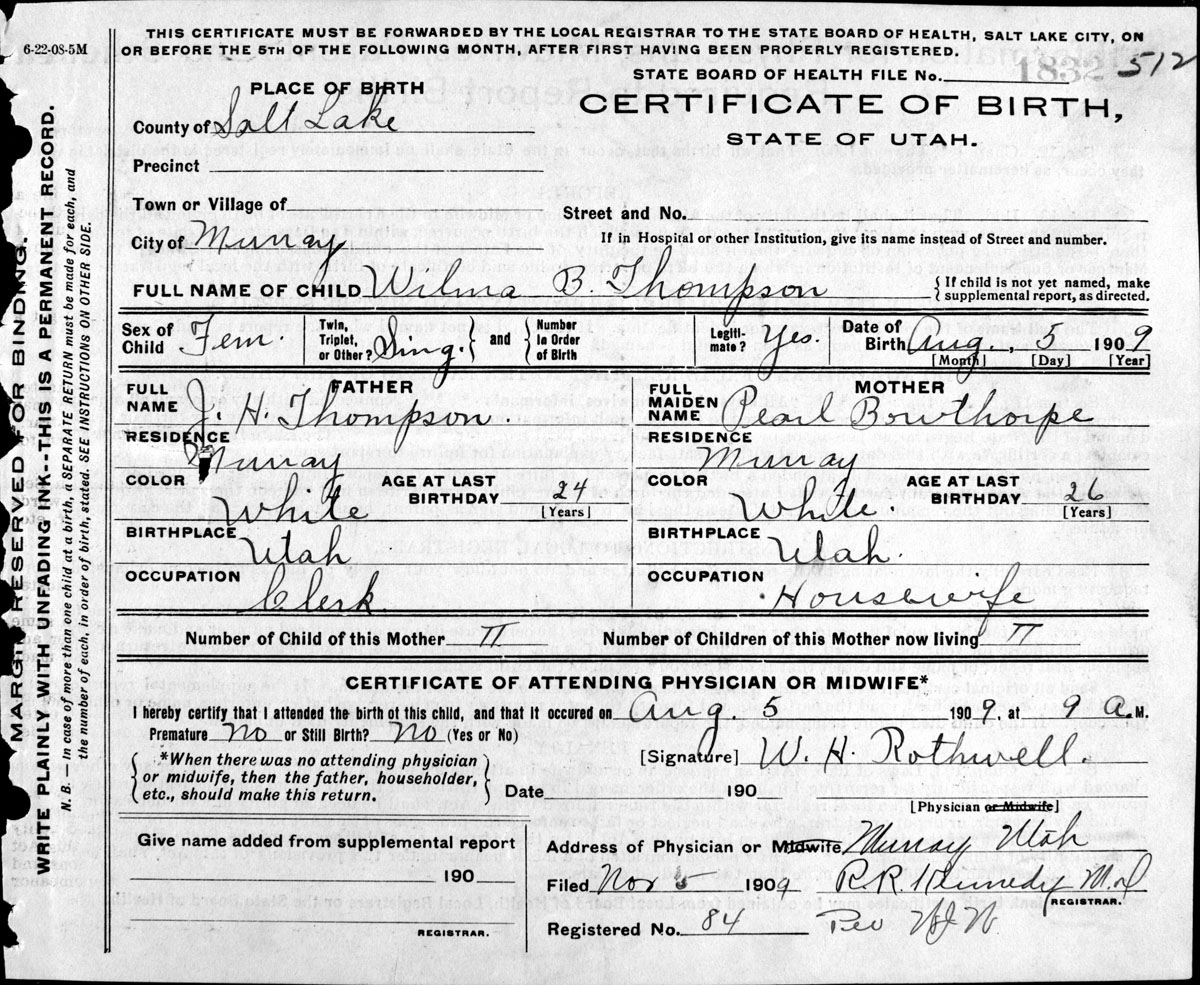 6-22-08-5M
THIS CERTIFICATE MUST BE FORWARDED BY THE LOCAL REGISTRAR TO THE STATE BOARD OF HEALTH, SALT LAKE CITY, ON
OR BEFORE THE 5TH OF THE FOLLOWING MONTH, AFTER FIRST HAVING BEEN PROPERLY REGISTERED.
STATE BOARD OF HEALTH FILE No. 1832 512
PLACE OF BIRTH
CERTIFICATE OF BIRTH,
STATE OF UTAH.
County of Salt Lake
Precinct
Town or Village of
Street and No.
City of Murray
If in Hospital or other Institution, give its name instead of Street and number.
FULL NAME OF CHILD Wilma B. Thompson { If child is not yet named, make
supplemental report, as directed.
Sex of Child Fem. Twin, Triplet, or Other? Sing. } and { Number in Order of Birth Legiti-mate? Yes. Date of Birth Aug., 5 1909
[Month] [Day] [Year]
FATHER
FULL NAME J. H. Thompson.
RESIDENCE Murray
COLOR White AGE AT LAST BIRTHDAY 24 [Years]
BIRTHPLACE Utah
OCCUPATION Clerk
MOTHER
FULL MAIDEN NAME Pearl Bowthorpe
RESIDENCE Murray
COLOR White AGE AT LAST BIRTHDAY 26 [Years]
BIRTHPLACE Utah.
OCCUPATION Housewife
Number of Child of this Mother II Number of Children of this Mother now living II
CERTIFICATE OF ATTENDING PHYSICIAN OR MIDWIFE*
I hereby certify that I attended the birth of this child, and that it occured on Aug. 5 1909, at 9 a.M.
Premature No or Still Birth? No (Yes or No)
{ *When there was no attending physician
or midwife, then the father, householder,
etc., should make this return. }
[Signature] W. H. Rothwell.
Date 190
[Physician or Midwife]
Give name added from supplemental report
190
REGISTRAR.
Address of Physician or Midwife Murray Utah
Filed Nov 1909 R.R. Kennedy M.d
REGISTRAR.
Registered No. 84
MARGIN RESERVED FOR BINDING.
WRITE PLAINLY WITH UNFADING INK--THIS IS A PERMANENT RECORD.
N. B. — In case of more than one child at a birth, a SEPARATE RETURN must be made for each, and
the number of each, in order of birth, stated. SEE INSTRUCTIONS ON OTHER SIDE.